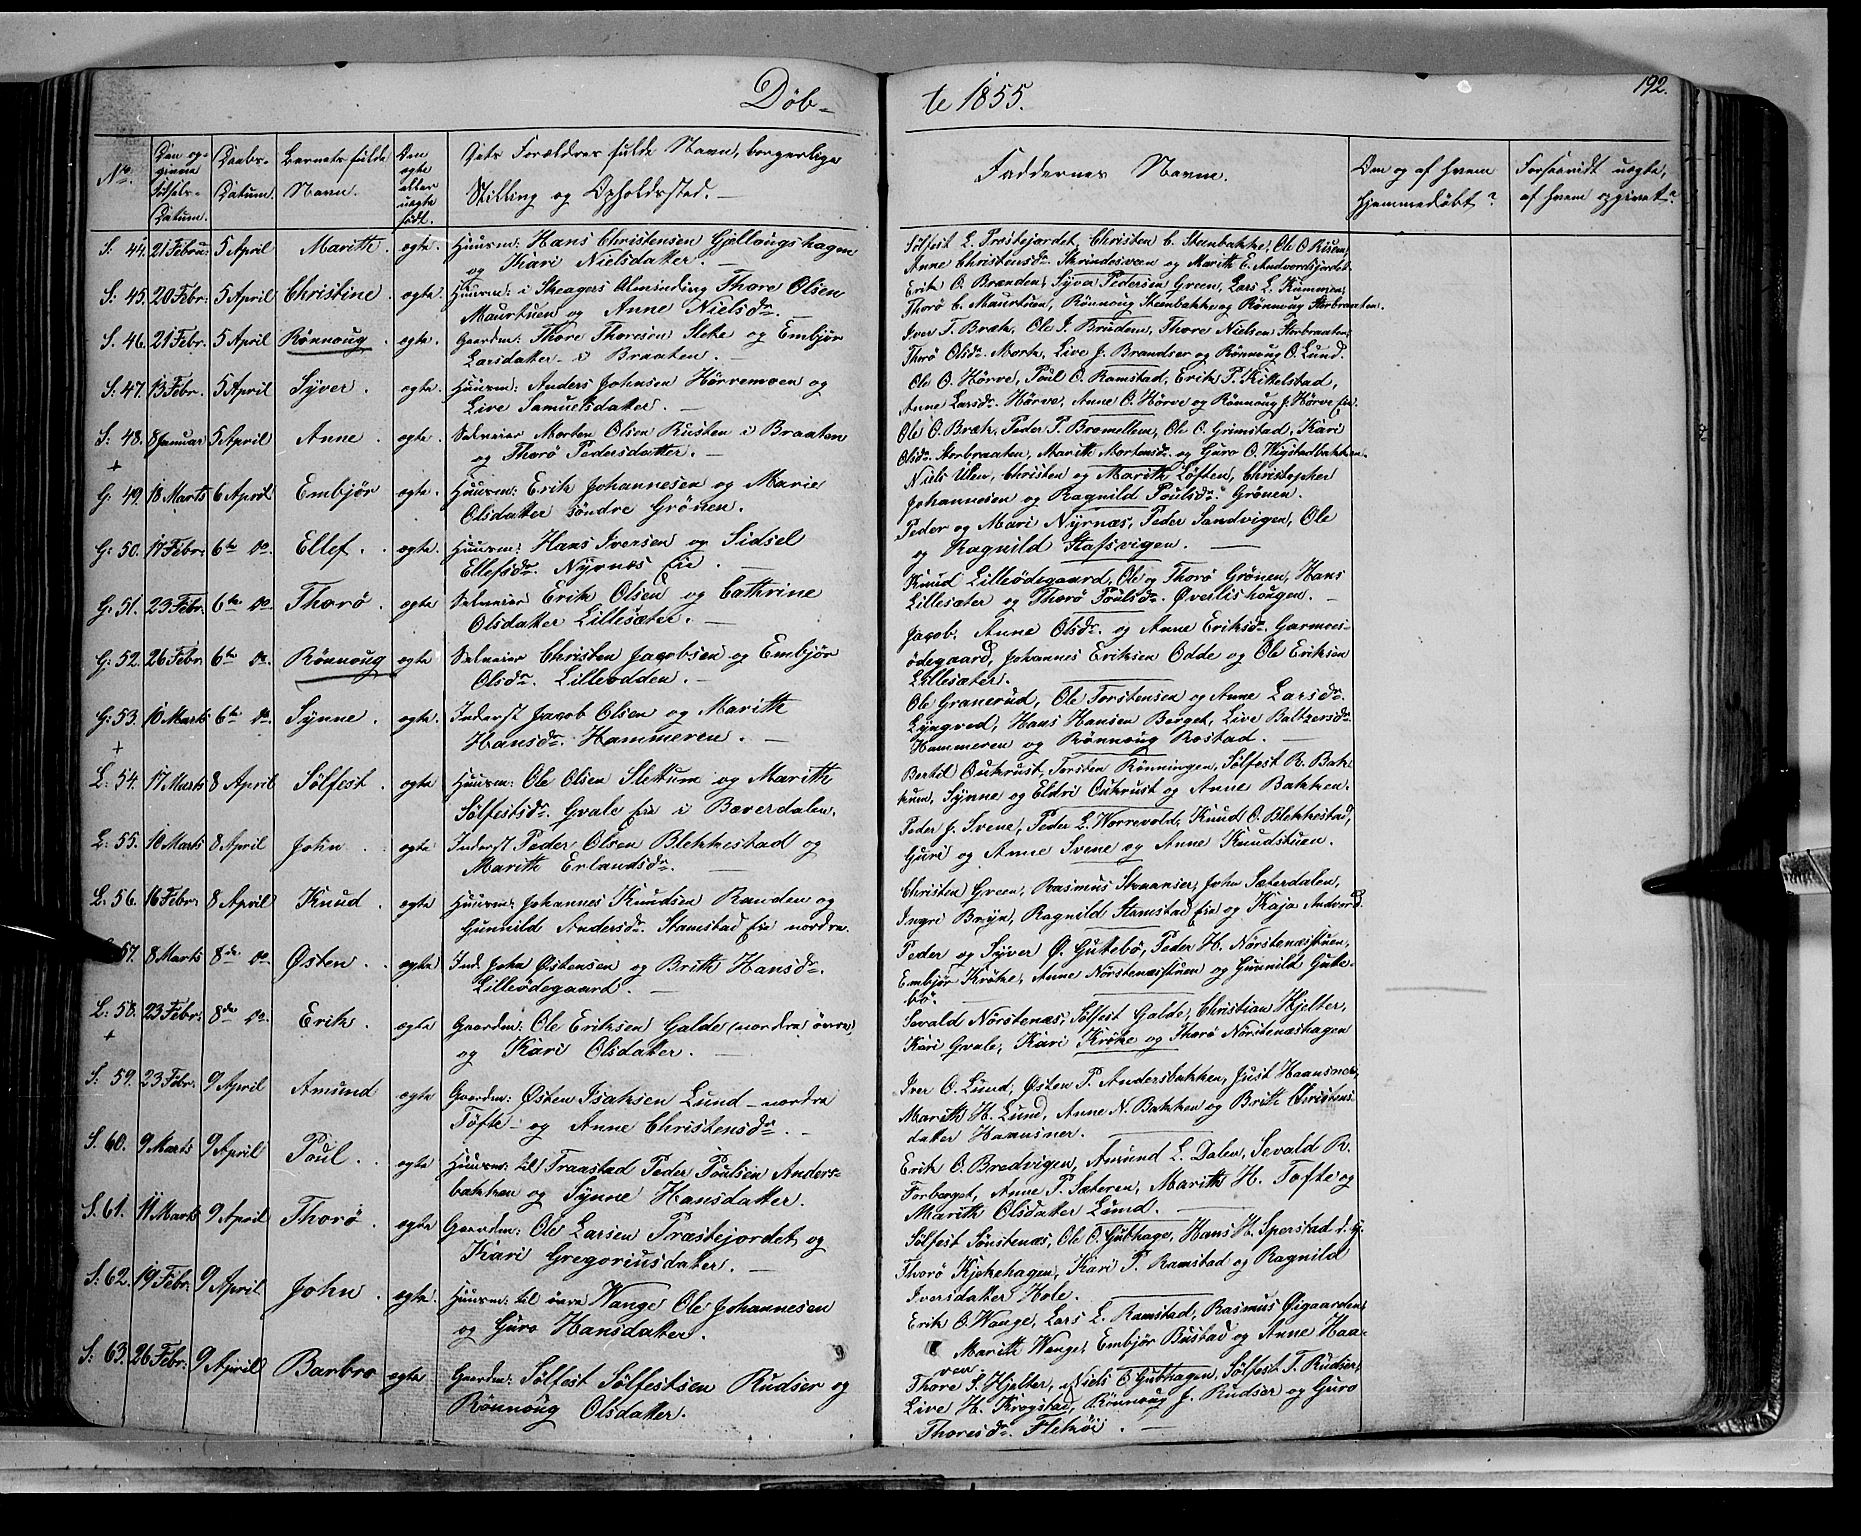 Døb-
te 1855.
192.
No.
Den og-
givne
fødsels-
Datum.
Daabs-
Datum.
Barnets fulde
Navn.
Om
ægte
eller
uægte
født.
Dets Forældres fulde Navn, borgerlige
Stilling og Opholdssted. —
Faddernes Navne.
Om og af hvem
hjemmedøbt?
Forsaavidt uægte,
af hvem opgivet?
S: 44. 21 Februar 5 April Marith . ægte. Huusm: Hans Christensen Gjellougshagen
og Kari Nielsdatter. —
Sølfest L. Præstejordet, Christen C. Steenbakke, Ole O Risen
Anne Christensdr. Skrindesveen og Marith E. Andvordsjordet
S: 45. 20 Febr: 5 April Christine . ægte. Huusm: i Skeagers Alminding Thore Olsen
Maurtuen og Anne Nielsdr.
Erik O. Brænden, Syva Pedersen Green, Lars L. Kummen,
Thorø C. Maurtuen, Rønnoug Steenbakke og Rønnoug Storbraaten.
S. 46. 21 Febr. 5 April Rønnoug . ægte. Gaardm: Thore Thoresen Slete og Embjør
Larsdatter i Braaten. —
Iver T. Bræk, Ole J. Bruden, Thore Nielsen Storbraaten,
Thorø Olsdr. Mork, Live J. Brandser og Rønnoug O. Lund.
S: 47. 13 Febr. 5 April Syver . ægte. Huusm: Anders Johnsen Hørvemoen og
Live Samuelsdatter. —
Ole O. Hørve, Poul O. Ramstad, Erik P. Kikkelstad,
Anne Larsdr. Hørve, Anne O. Hørve og Rønnoug J. Hørve Eie.
S: 48. 8 Januar 5 April Anne . ægte. Selveier Morten Olsen Rusten i Braaten
og Thorø Pedersdatter. —
Ole O. Bræk, Peder P. Bræmellem, Ole O. Grimstad, Kari
Olsdr. Storbraaten, Marith Mortensdr. og Guro O. Wigstadbakken.
+
G: 49. 18 Marts 6 April Embjør ægte. Huusm: Erik Johannesen og Marie
Olsdatter søndre Grønen.
Niels Ulen, Christen og Marith Løften, Christopher
Johannesen og Ragnild Poulsdr. Grønen.
G: 50. 17 Febr: 6te do. Ellef . . ægte Huusm: Hans Iversen og Sidsel
Ellefsdr. Nyrnæs Eie . —
Peder og Mari Nyrnæs, Peder Sandvigen, Ole
og Ragnild Stafsvigen. —
G: 51. 23 Febr: 6te do. Thorø . ægte Selveier Erik Olsen og Cathrine
Olsdatter Lillesæter. —
Knud Lilleødegaard, Ole og Thorø Grønen, Hans
Lillesæter og Thorø Poulsdr. Øverlishougen. —
G: 52. 26 Febr 6te do. Rønnoug ægte Selveier Christen Jacobsen og Embjør
Olsdr. Lilleodden. —
Jacob, Anne Olsdr. og Anne Eriksdr. Garmos-
ødegaard, Johannes Eriksen Odde og Ole Eriksen
Lillesæter.
G: 53. 10 Marts 6te do Synne . ægte. Inderst Jacob Olsen og Marith
Hansdr. Hammeren . —
Ole Granerud, Ole Torstensen og Anne Larsdr.
Lyngved, Hans Hansen Berget, Live Baltzersdr.
Hammeren og Rønnoug Rostad. —
+
L: 54. 17 Marts 8 April Sølfest . ægte Huusm: Ole Olsen Slettum og Marith
Sølfestsdr. Gvale Eie i Bæverdalen.
Bertil Oukrust, Torsten Rønningen, Sølfest R. Bak-
kum, Synne og Eldri Oukrust og Anne Bakken.
L: 55. 10 Marts 8 April John . ægte Inderst Peder Olsen Blekkestad og
Marith Erlandsdr. —
Peder J. Svene, Peder L. Worrevold, Knud O. Blekkestad,
Guri og Anne Svene og Anne Knudstuen.
L: 56. 16 Febr: 8 April Knud . ægte Huusm: Johannes Knudsen Randen og
Gunnild Andersdr. Stamstad Eie nordre.
Christen Green, Rasmus Straanser, John Sæterdalen,
Ingri Bryn, Ragnild Stamstad Eie og Kaja Andvord.
57. 8 Marts 8de do. Østen . ægte Ind. John Østensen og Brith Hansdr.
Lilleødegaard. —
Peder og Syver Ø. Guttebø, Peder H. Nørstenæsstuen,
Embjør Krøke, Anne Nørstenæsstuen og Gunnild Gute-
bø. —
L: 58. 23 Febr: 8de do. Erik. . ægte Gaardm: Ole Eriksen Galde (nordre øvre)
og Kari Olsdatter. —
Sevald Nørstenæs, Sølfest Galde, Christian Hjelter,
Kari Gvale, Kari Krøke og Thorø Nørstenæshagen
+
S: 59. 23 Febr: 9 April Amund ægte Gaardm: Østen Isaksen Lund nordre
Tofte og Anne Christensdr. —
Iver O. Lund, Østen P. Andersbakken, Just Haansner,
Marith H. Lund, Anne N. Bakken og Brith Christens
datter Haansner.
S: 60. 9 Marts 9 April Poul . . ægte Huusm: til Traastad Peder Poulsen Anders-
bakken og Synne Hansdatter.
Erik O. Bredvigen, Amund L. Dalen, Sevald R.
Forberget, Anne P. Sæteren, Marith H. Tofte og
Marith Olsdatter Lund. —
S. 61. 11 Marts 9 April Thorø . ægte Gaardm: Ole Larsen Præstejordet og
Kari Gregoriusdatter. —
Sølfest Sønstenæs, Ole O. Gubhage, Hans H. Sperstad d. G.
Thorø Kjekehagen, Kari P. Ramstad og Ragnild
Iversdatter Hole.
S: 62. 19 Febr: 9 April John . ægte. Huusm: til øvre Wange Ole Johannesen
og Guro Hansdatter.
Erik O. Wange, Lars L. Ramstad, Rasmus Øigaarden,
Marith Wange, Embjør Bustad og Anne Haa-
ven.
S: 63. 26 Febr: 9 April Barbro ægte Gaardm: Sølfest Sølfestsen Rudser og
Rønnoug Olsdatter.
Thore S. Hjelter, Niels O Gubhagen, Sølfest T. Rudser,
Live H. Krogstad, Rønnoug J. Rudser og Guro
Thoresdr. Flekøi . —